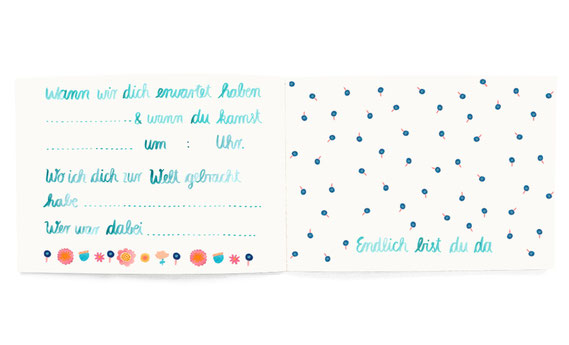 Wann wir dich erwartet haben
.................... & wann du kamst
.................... um : Uhr.
Wo ich dich zur Welt gebracht
habe ........................................
Wer war dabei ..........................
Endlich bist du da